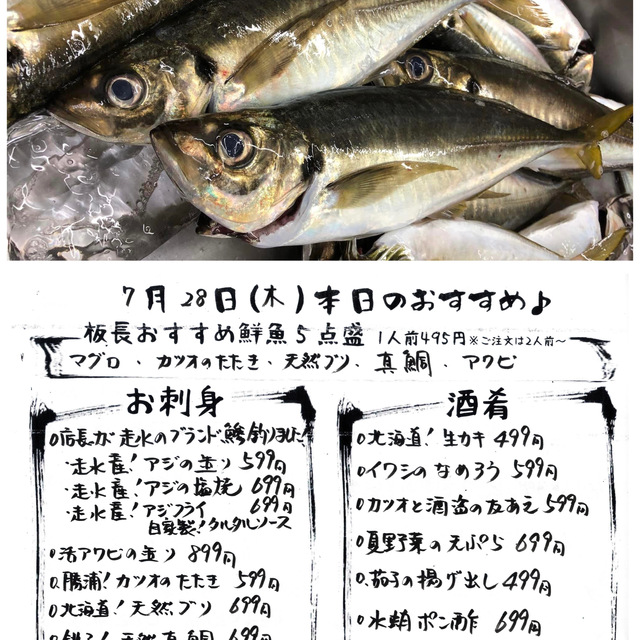 7月28日(木)本日のおすすめ♪
板長おすすめ鮮魚5点盛 1人前495円 ※ご注文は2人前〜
マグロ、カツオのたたき、天然ブリ、真鯛、アワビ
お刺身
○店長が走水のブランド鯵釣りました
・走水産!アジの造り 599円
・走水産!アジの塩焼 699円
・走水産!アジフライ 699円
自家製!タルタルソース
○活アワビの造り 899円
○勝浦!カツオのたたき 599円
○北海道!天然ブリ 699円
天然真鯛 699円
酒肴
○北海道!生カキ 499円
○イワシのなめろう 599円
○カツオと酒盗の友あえ 599円
○夏野菜の天ぷら 699円
○茄子の揚げ出し 499円
○水蛸ポン酢 699円